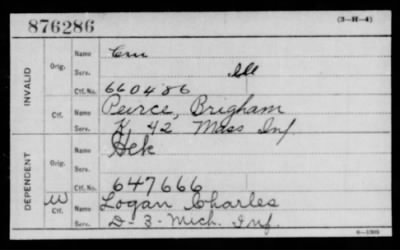 876286 (3-H-4)
INVALID
Orig. Name
Serv.
Ctf. No. 660486
Ctf. Name Peirce, Brigham
Serv. K 42 Mass Inf
DEPENDENT
Orig. Name
Serv.
Ctf. No. 647666
W Ctf. Name Logan Charles
Serv. D-3-Mich. Inf.